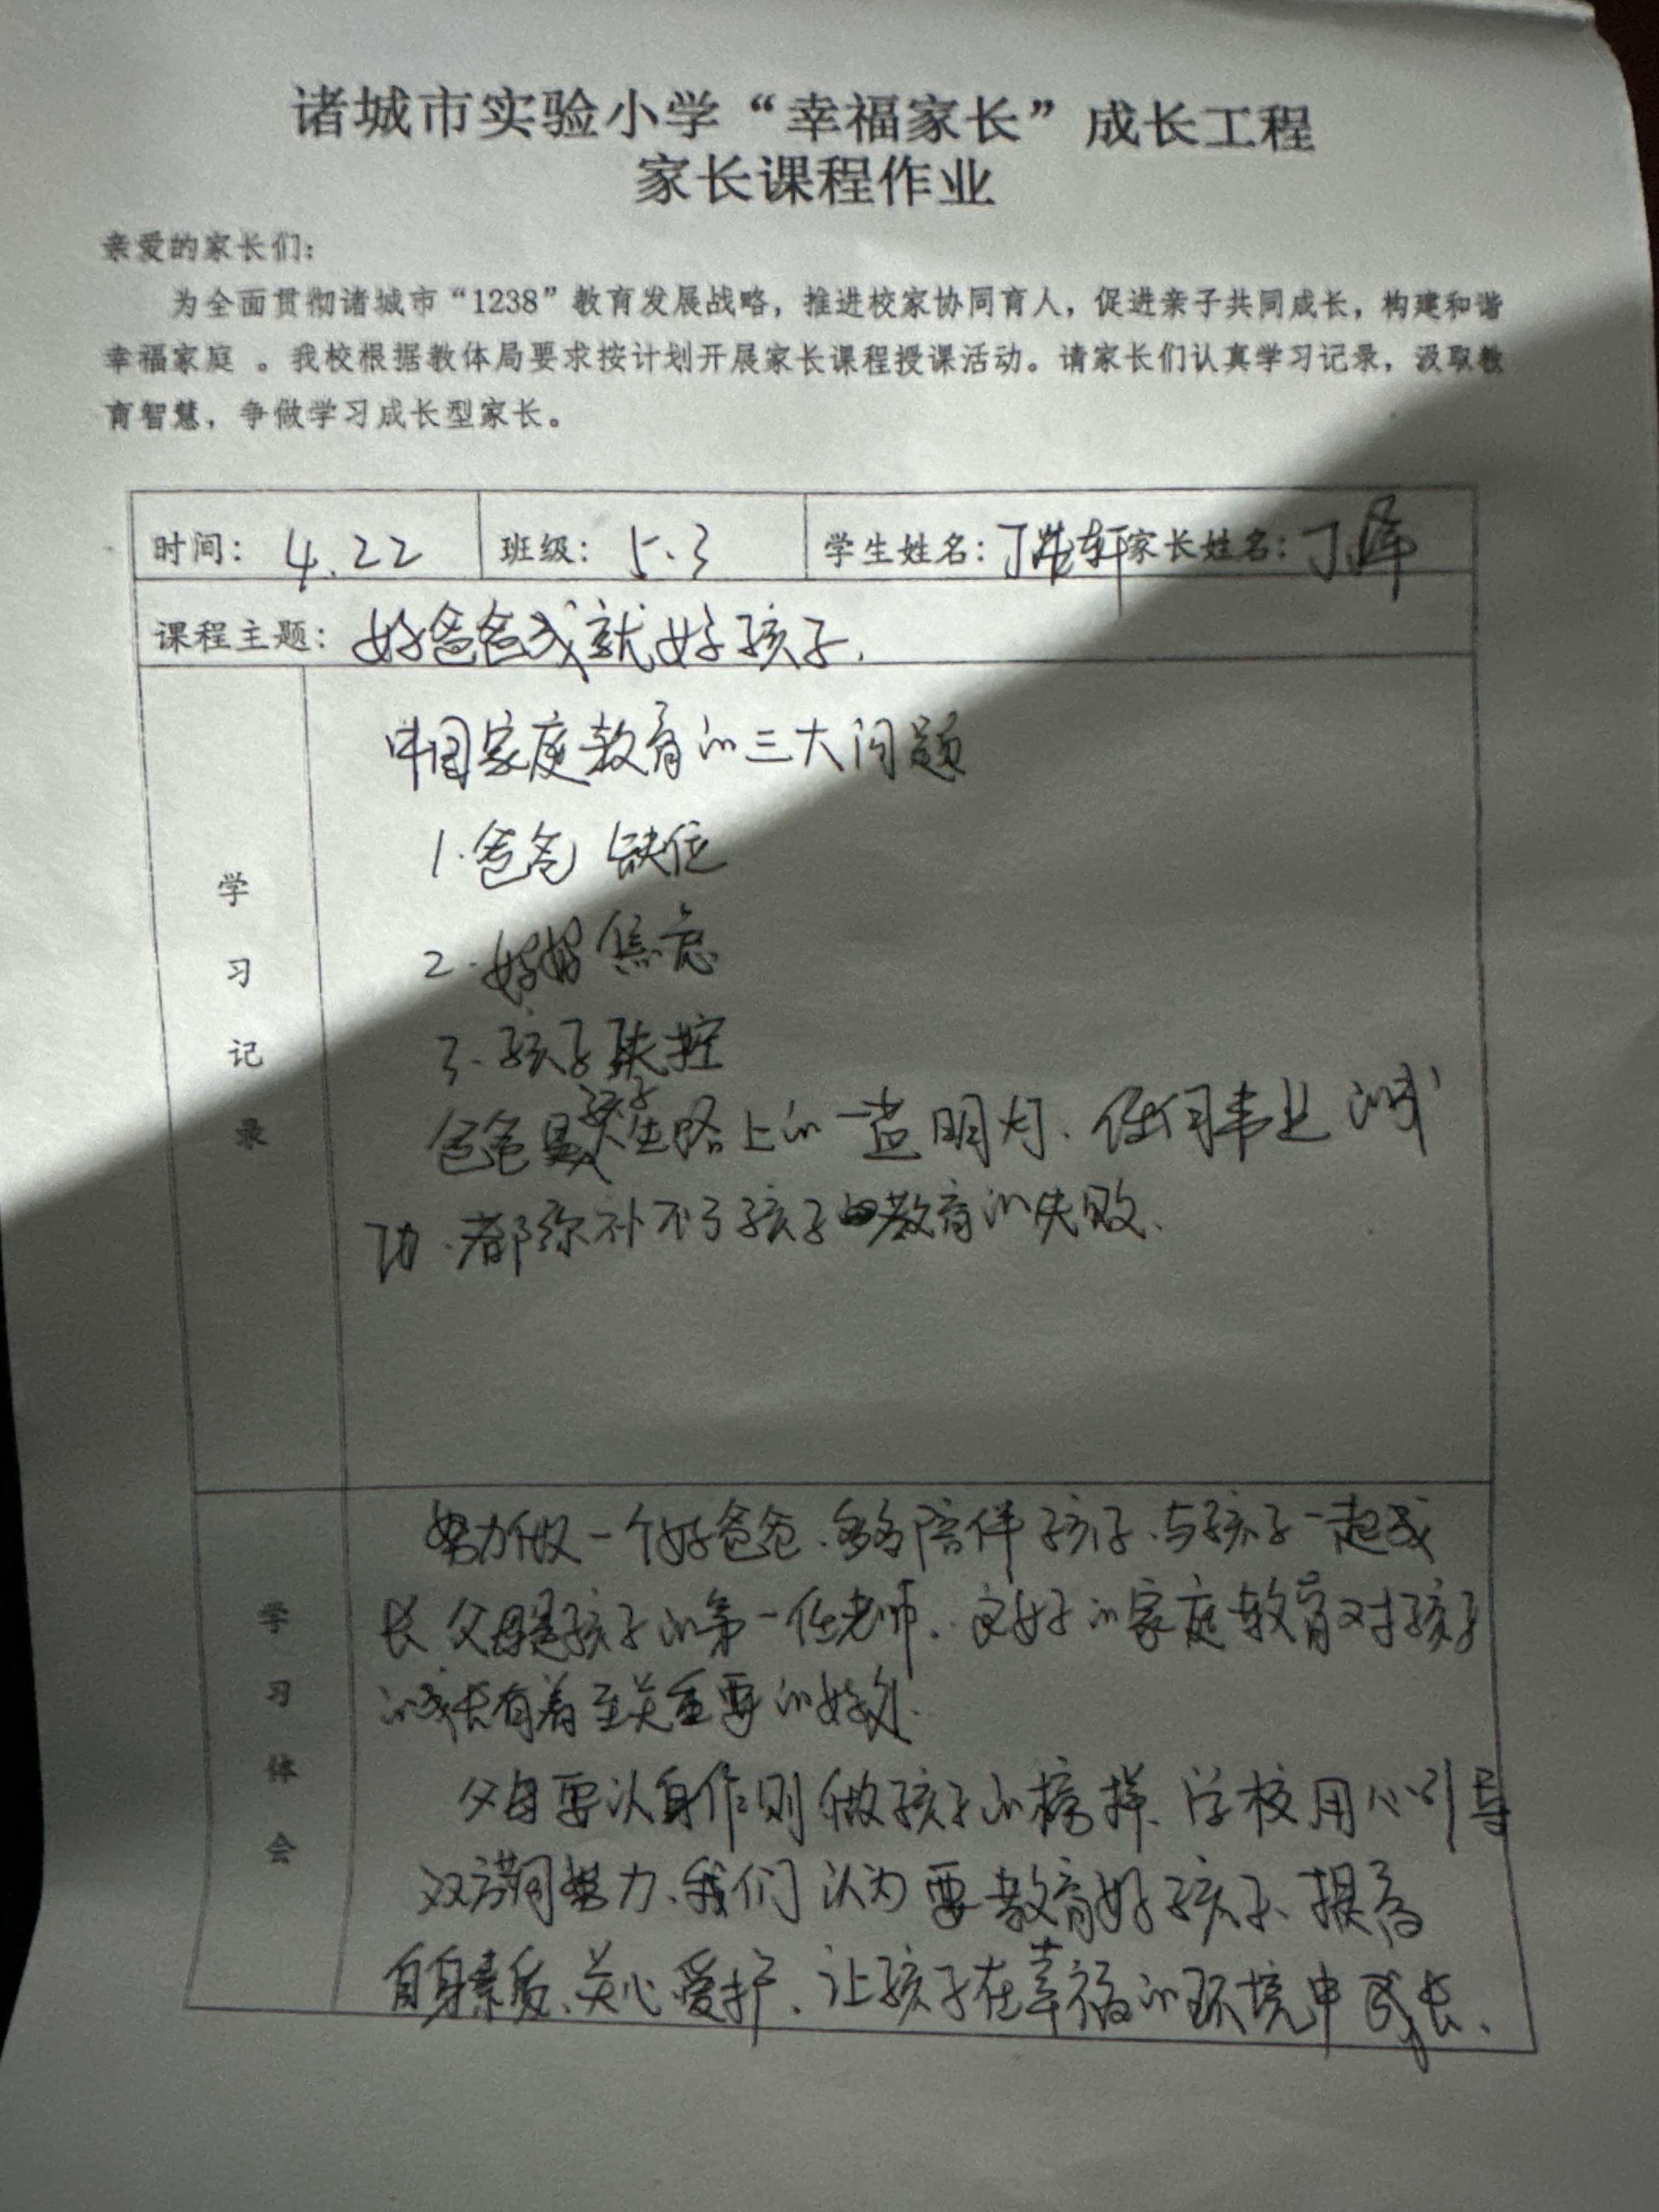 诸城市实验小学“幸福家长”成长工程
家长课程作业
亲爱的家长们：
为全面贯彻诸城市“1238”教育发展战略，推进校家协同育人，促进亲子共同成长，构建和谐
幸福家庭 。我校根据教体局要求按计划开展家长课程授课活动。请家长们认真学习记录，汲取教
育智慧，争做学习成长型家长。
时间： 4.22 班级： 5.3 学生姓名：丁浩轩 家长姓名：丁泽
课程主题： 好爸爸成就好孩子.
学习记录
中国家庭教育的三大问题
1.爸爸 缺位
2.妈妈 焦虑
3.孩子失控
爸爸是孩子人生路上的一盏明灯、任何事业的成
功.都弥补不了孩子教育的失败.
学习体会
努力做一个好爸爸.多多陪伴孩子.与孩子一起成
长 父母是孩子的第一任老师. 良好的家庭教育对孩子
的成长有着至关重要的好处.
父母要以身作则 做孩子的榜样、学校用心引导
双方共同努力、我们认为要教育好孩子、提高
自身素质、关心爱护、让孩子在幸福的环境中成长、